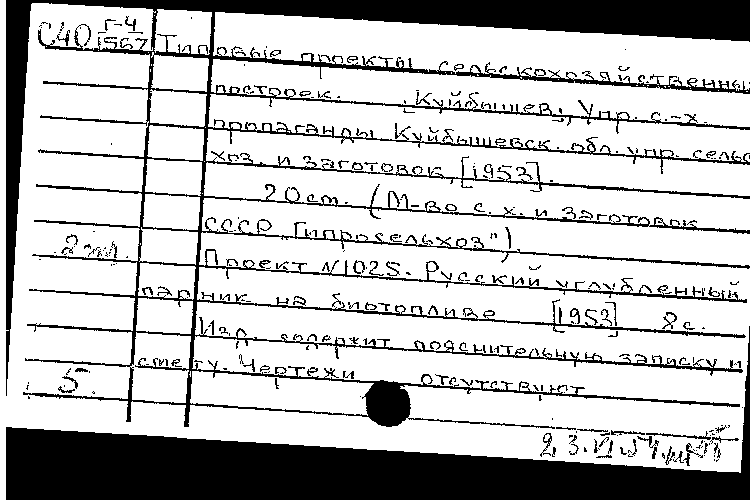 С40 Г-4/1567 Типовые проекты сельскохозяйственных
построек. [Куйбышев], Упр. с.-х.
пропаганды Куйбышевск. обл. упр. сельс
хоз. и заготовок, [1953].
20 см. (М-во с. х. и заготовок
СССР „Гипросельхоз").
2 экз.
Проект №1025. Русский углубленный
парник на биотопливе [1953] 8 с.
Изд. содержит пояснительную записку и
смету. Чертежи отсутствуют
5.
23.VI.54